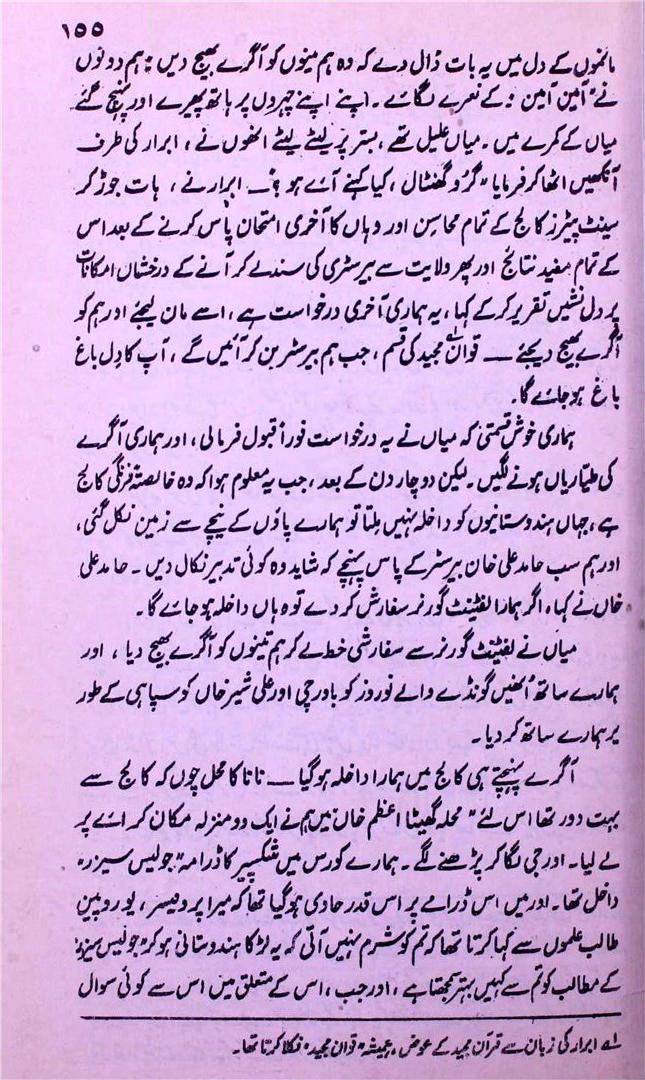 ۱۵۵
مائموں کے دل میں یہ بات ڈال دے کہ وہ ہم مینوں کو آگرے بھیج دیں ؛ ہم دونوں
نے "آمین آمین" کے نعرے لگائے۔ اپنے اپنے چہروں پر ہاتھ پھیرے اور پہنچ گئے
میاں کے کمرے میں۔ میاں علیل تھے، بستر پر لیٹے لیٹے انھوں نے، ابرار کی طرف
آنکھیں اٹھا کر فرمایا "گرو گھنٹال، کیا کہنے آے ہو؟ ـــ ابرار نے، ہات جوڑ کر
سینٹ پیٹرز کالج کے تمام محاسن اور وہاں کا آخری امتحان پاس کرنے کے بعد اس
کے تمام مفید نتائج اور پھر ولایت سے بیرسٹری کی سند لے کر آنے کے درخشاں امکانات
پر دل نشیں تقریر کر کے کہا، یہ ہماری آخری درخواست ہے، اسے مان لیجئے اور ہم کو
آگرے بھیج دیجئے ـــ قوانِ مجید کی قسم، جب ہم بیرسٹر بن کر آئیں گے، آپ کا دِل باغ
باغ ہو جائے گا۔
ہماری خوش قسمتی کہ میاں نے یہ درخواست فوراً قبول فرما لی، اور ہماری آگرے
کی طیّاریاں ہونے لگیں۔ لیکن دو چار دن کے بعد، جب یہ معلوم ہوا کہ وہ خالصتہً فرنگی کالج
ہے، جہاں ہندوستانیوں کو داخلہ نہیں ملتا تو ہمارے پاؤں کے نیچے سے زمین نکل گئی،
اور ہم سب حامد علی خان بیرسٹر کے پاس پہنچے کہ شاید وہ کوئی تدبیر نکال دیں۔ حامد علی
خاں نے کہا، اگر ہمارا لفٹینٹ گورنر سفارش کر دے تو وہاں داخلہ ہو جائے گا۔
میاں نے لفٹینٹ گورنر سے سفارشی خط لے کر ہم تینوں کو آگرے بھیج دیا، اور
ہمارے ساتھ اُنھیں گونڈے والے نوروز کو باورچی اور علی شیر خاں کو سپاہی کے طور
پر ہمارے ساتھ کر دیا۔
آگرے پہنچتے ہی کالج میں ہمارا داخلہ ہو گیا ـــ نانا کا محل چوں کہ کالج سے
بہت دور تھا اس لئے "محلہ گھیٹا اعظم خاں" میں ہم نے ایک دو منزلہ مکان کرائے پر
لے لیا۔ اور جی لگا کر پڑھنے لگے۔ ہمارے کورس میں شکسپیر کا ڈرامہ "جولیس سیزر"
داخل تھا۔ اور میں اس ڈرامے پر اس قدر حاوی ہو گیا تھا کہ میرا پروفیسر، یوروپین
طالب علموں سے کہا کرتا تھا کہ تم کو شرم نہیں آتی کہ یہ لڑکا ہندوستانی ہو کر "جولیس سیزر"
کے مطالب کو تم سے کہیں بہتر سمجھتا ہے، اور جب، اس کے متعلق میں اس سے کوئی سوال
لے ابرار کی زبان سے قرآن مجید کے عوض، ہمیشہ "قوان مجید" نکلا کرتا تھا۔